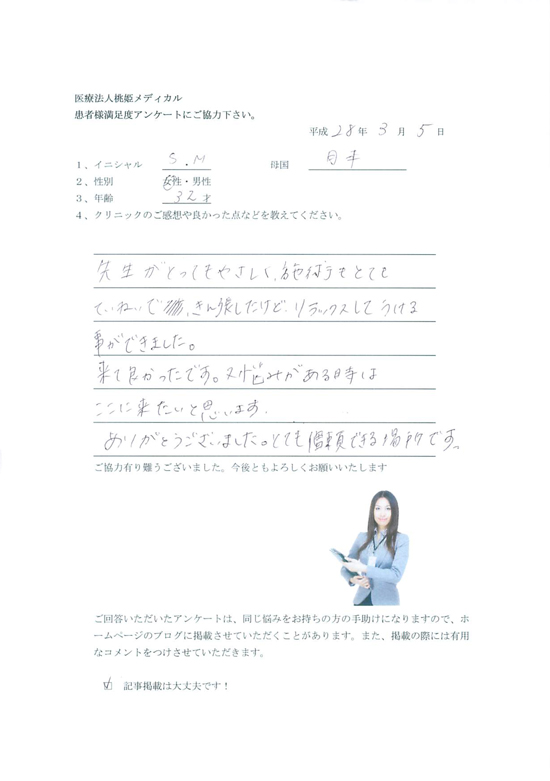 医療法人桃姫メディカル
患者様満足度アンケートにご協力下さい。
平成 28 年 3 月 5 日
1、イニシャル S.M 母国 日本
2、性別 女性・男性
3、年齢 32才
4、クリニックのご感想や良かった点などを教えてください。
先生がとってもやさしく、施術もとても
ていねいで、きん張したけど、リラックスしてうける
事ができました。
来て良かったです。又悩みがある時は
ここに来たいと思います。
ありがとうございました。とても信頼できる場所です。
ご協力有り難うございました。今後ともよろしくお願いいたします
ご回答いただいたアンケートは、同じ悩みをお持ちの方の手助けになりますので、ホ
ームページのブログに掲載させていただくことがあります。また、掲載の際には有用
なコメントをつけさせていただきます。
☑ 記事掲載は大丈夫です！